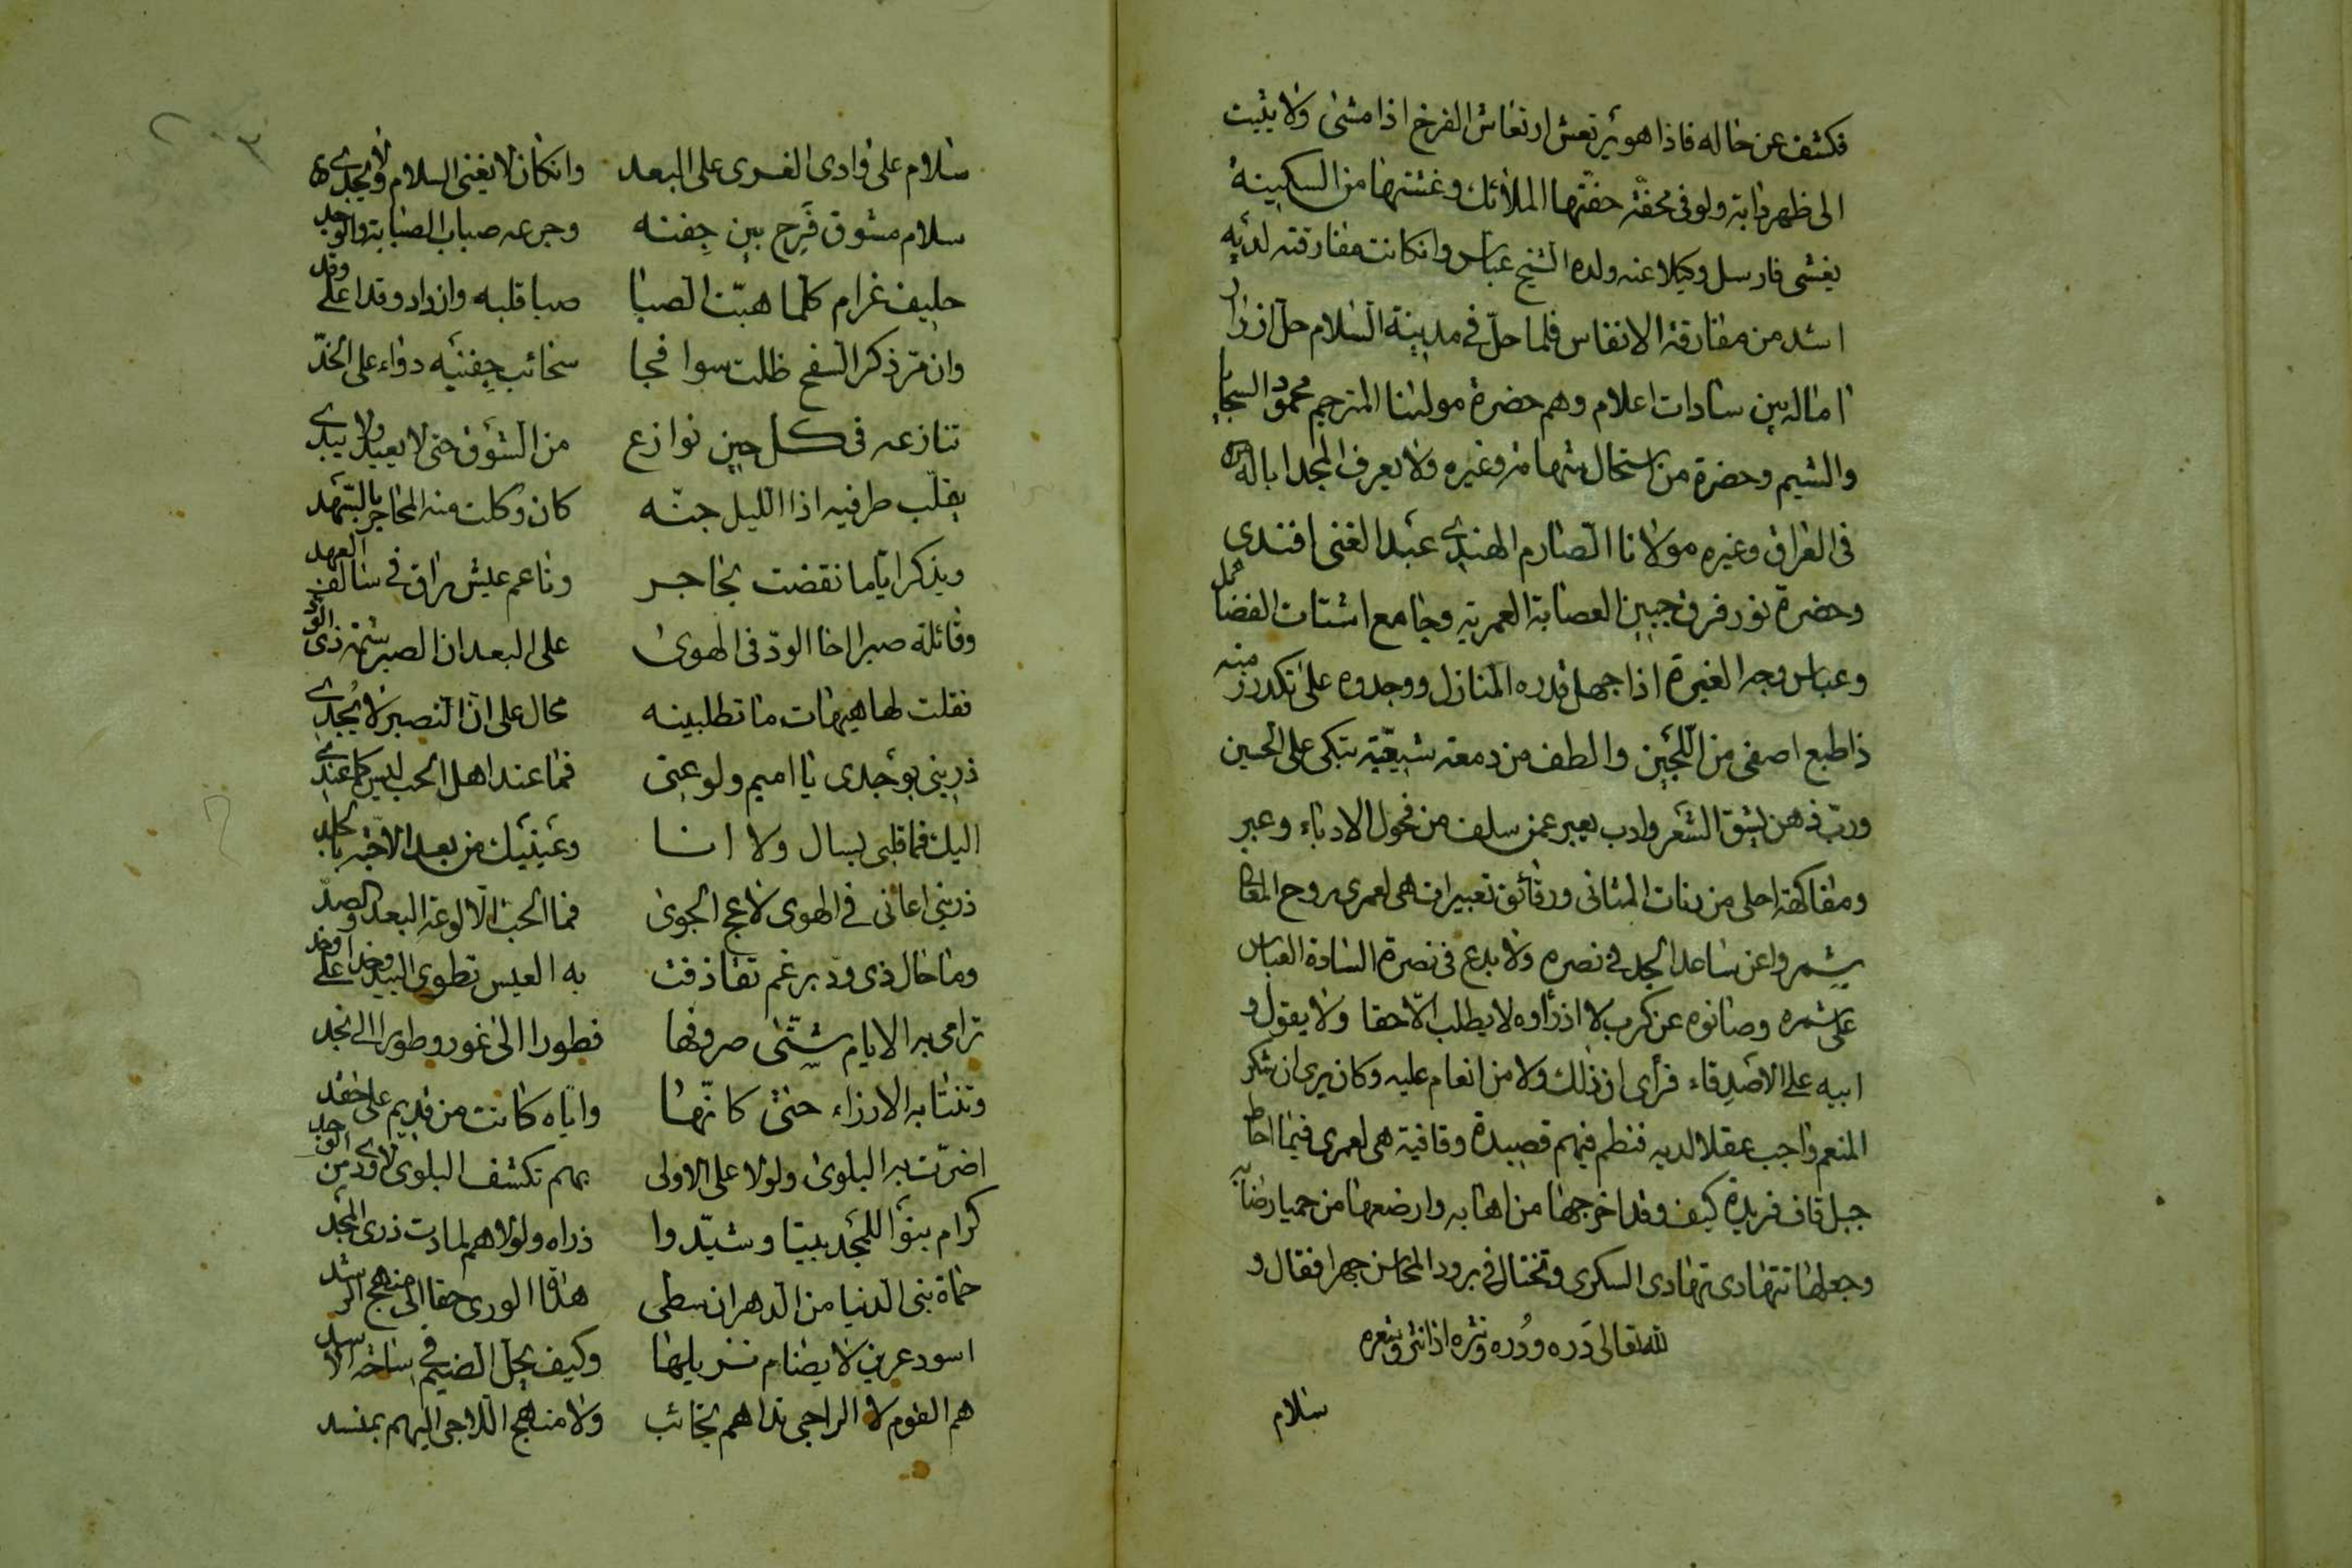 فكشف عن حاله فاذا هو يرتعش ارتعاش الفرخ اذا مشى ولا يثبت
الى ظهر دابة ولو في محفة حفتها الملائك وغشتها من السكينة
يغشى فارسل وكيلا عنه ولده الشيخ عباس وانكانت مفارقته لديه
اشد من مفارقة الانفاس فلما حل في مدينة السلام حل ازرار
اماله بين سادات اعلام وهم حضرة مولينا المترجم محمود السجايا
والشيم وحضرة من استحال شهامة وغيره ولا يعرف المجد اباله
في العراق وغيره مولانا الصارم الهندي عبد الغني افندي
وحضرة نور فرق جبين العصابة العمرية وجامع اشتات الفضائل
وعباس وجه الغيرة اذا جهل قدره المنازل ووجدوه على تكدر منه
ذا طبع اصفى من اللجين والطف من دمعة شيعية تبكى على الحسين
ورب ذهن يشق الشعر وادب يعبر عمن سلف من فحول الادباء وعبر
ومفاكهة احلى من رنات المثاني ورقائق تعبيرات هي لعمري روح المعاني
شمروا عن ساعد الجد في نصره ولا بدع في نصرة السادة العباس
على شمره وصانوه عن كرب لا اذ رأوه لا يطلب الا حقا ولا يقول و
ابيه على الاصدقاء فرأى ان ذلك ولا من انعام عليه وكان يرى ان شكر
المنعم واجب عقلا لديه فنظم فيهم قصيدة وقافية هي لعمري فيما احاط
جبل قاف فريدة كيف وقد اخرجها من اهابه وارضعها من حميا رضابه
وجعلها تتهادى تهادى السكرى وتختال في برود المحاسن جهرا فقال و
لله تعالى دره ودره ونثره اذا نثر وشعره
سلام
سلام على وادي الغرى على البعد وانكان لا يغني السلام ولا يجدي
سلام مشوق قرح بين جفنه وجرعه صباب الصبابة والوجد
حليف غرام كلما هبت الصبا صبا قلبه وازداد وقدا على وقد
وان مر ذكر السفح ظلت سوافحا سحائب جفنيه دواء على الخد
تنازعه في كل حين نوازع من الشوق حتى لا يعيد ولا يبدي
يقلب طرفيه اذا الليل جنه كان وكلت منه المحاجر بالسهد
ويذكر اياما نقضت بحاجر وناعم عيش راق في سالف العهد
وقائلة صبرا اخا الود في الهوى على البعد ان الصبر شيمة ذي الود
فقلت لها هيهات ما تطلبينه محال على ان التصبر لا يجدي
ذريني بوجدي يا اميم ولوعتي فما عند اهل الحب ليس كما عندي
اليك فما قلبي بسال ولا انا وعينيك من بعد الاحبة بالجلد
ذريني اعاني في الهوى لاعج الجوى فما الحب الا لوعة البعد والصد
وما حال ذي ود برغم تقاذفت به العيس تطوي البيد وخدا على وخد
ترامى به الايام شتى صروفها فطورا الى غور وطورا الى نجد
وتنتابه الارزاء حتى كانها واياه كانت من قديم على حقد
اضرت به البلوى ولولا على الاولى بهم تكشف البلوى لاودي من الوجد
كرام بنوا للمجد بيتا وشيدوا ذراه ولولاهم لمادت ذرى المجد
حماة بني الدنيا من الدهر ان سطى هداة الورى حقا الى منهج الرشد
اسود عرين لا يضام نزيلها وكيف يحل الضيم في ساحة الاسد
هم القوم لا الراجي نداهم بخائب ولا منهج اللاجي اليهم بمنسد